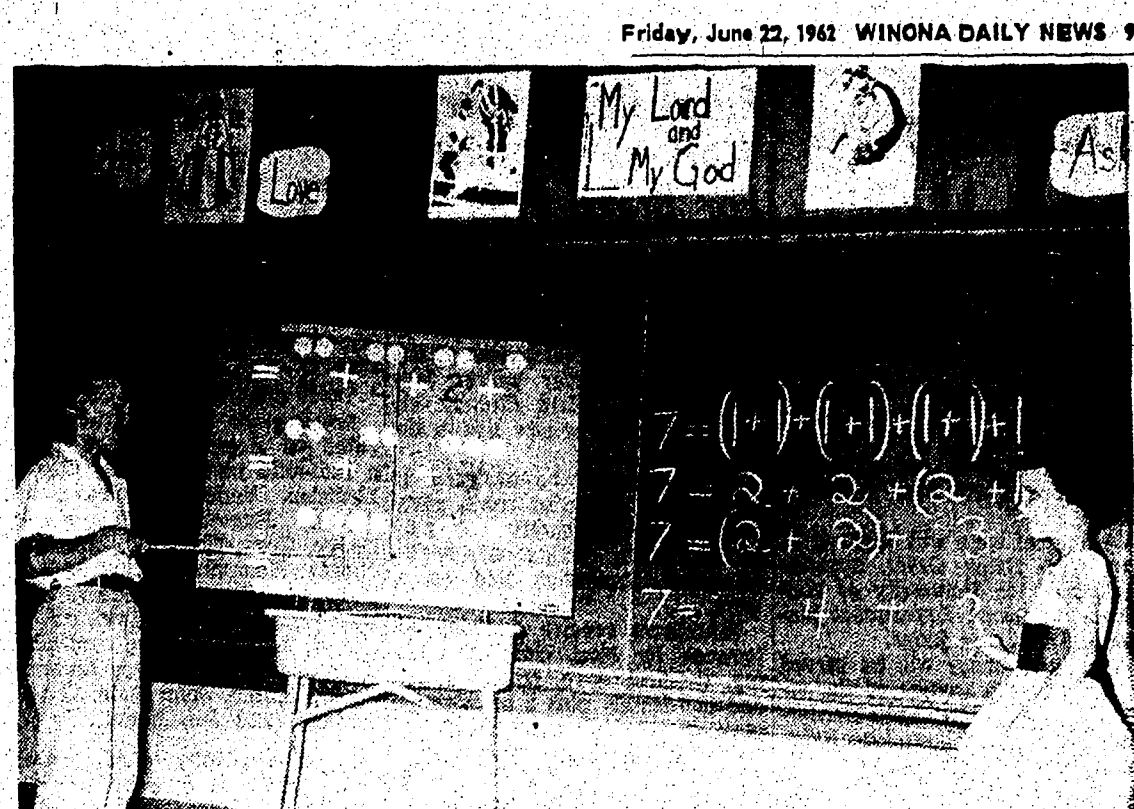 Friday, June 22, 1962 WINONA DAILY NEWS 9
Love
My Lord
and
My God
As
= + + 2 +
= +
7 = (1+1)+(1+1)+(1+1)+1
7 = 2 + 2 +(2 +1
7 = (2 + 2)+ 3
7 = 4 + 3